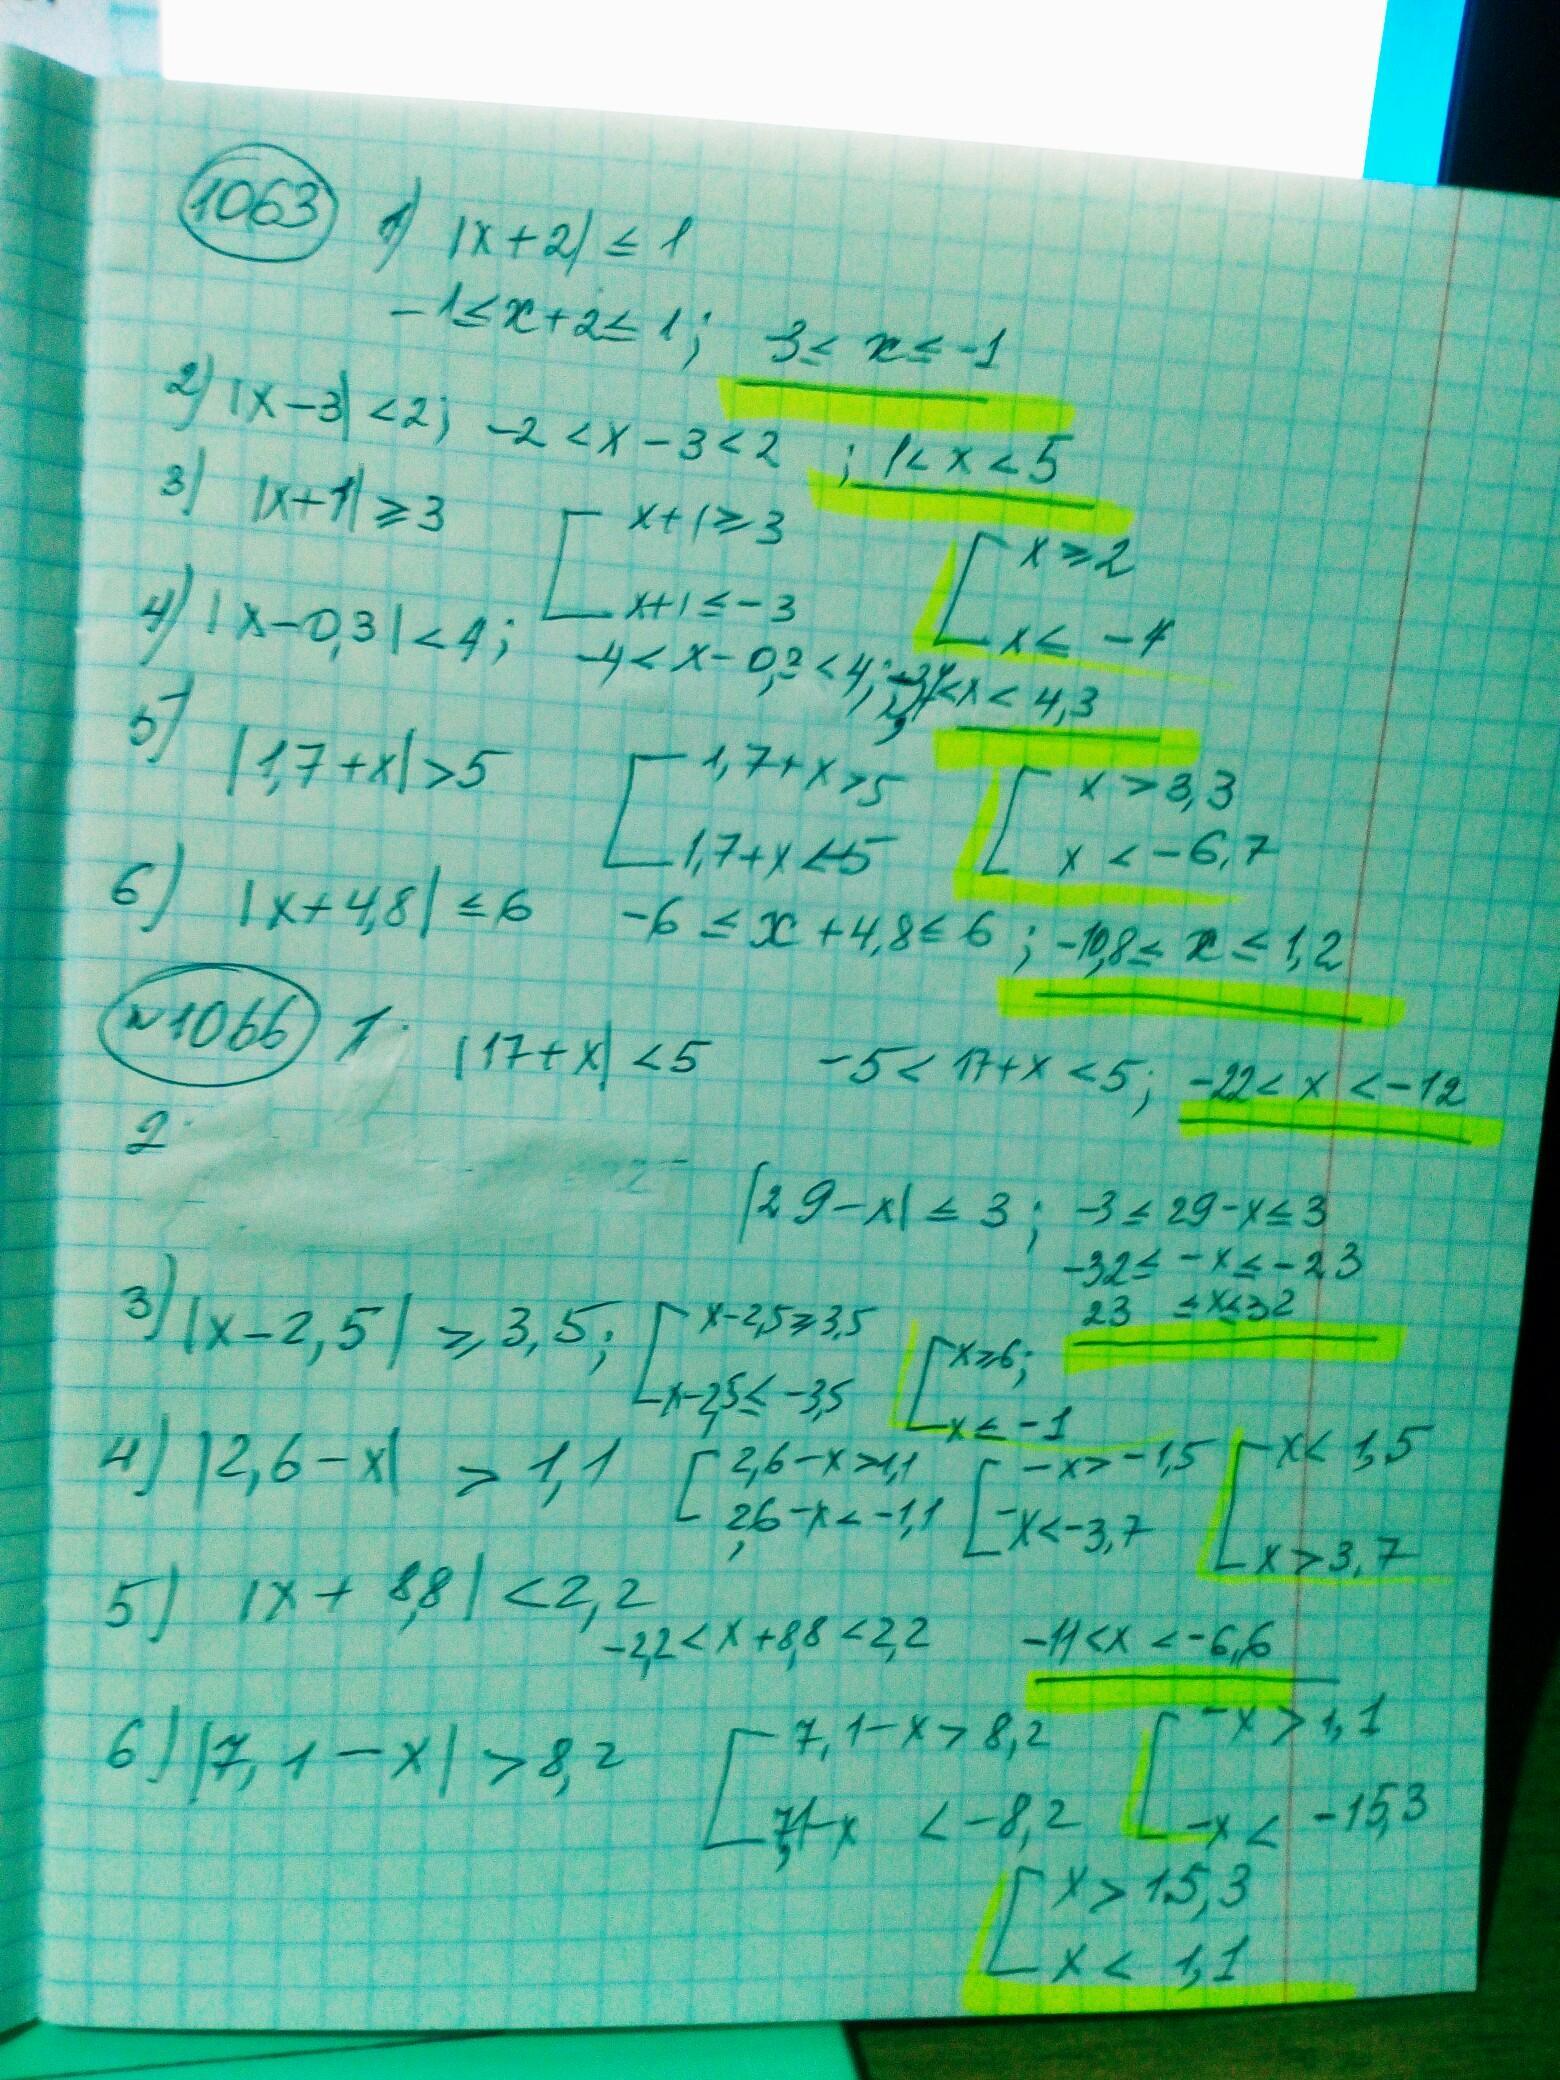 1063 1) |x+2| ≤ 1
-1 ≤ x+2 ≤ 1; -3 ≤ x ≤ -1
2) |x-3| < 2; -2 < x-3 < 2; 1 < x < 5
3) |x+1| ≥ 3 [ x+1 ≥ 3 [ x ≥ 2
x+1 ≤ -3 x ≤ -4
4) |x-0,3| < 4; -4 < x-0,3 < 4; -3,7 < x < 4,3
5) |1,7+x| > 5 [ 1,7+x > 5 [ x > 3,3
1,7+x < -5 x < -6,7
6) |x+4,8| ≤ 6 -6 ≤ x+4,8 ≤ 6; -10,8 ≤ x ≤ 1,2
№1066 1. |17+x| < 5 -5 < 17+x < 5; -22 < x < -12
2. |29-x| ≤ 3; -3 ≤ 29-x ≤ 3
-32 ≤ -x ≤ -23
23 ≤ x ≤ 32
3) |x-2,5| ≥ 3,5; [ x-2,5 ≥ 3,5 [ x ≥ 6;
x-2,5 ≤ -3,5 x ≤ -1
4) |2,6-x| > 1,1 [ 2,6-x > 1,1 [ -x > -1,5 [ x < 1,5
2,6-x < -1,1 -x < -3,7 x > 3,7
5) |x+8,8| < 2,2
-2,2 < x+8,8 < 2,2 -11 < x < -6,6
6) |7,1-x| > 8,2 [ 7,1-x > 8,2 [ -x > 1,1
7,1-x < -8,2 -x < -15,3
[ x > 15,3
x < 1,1